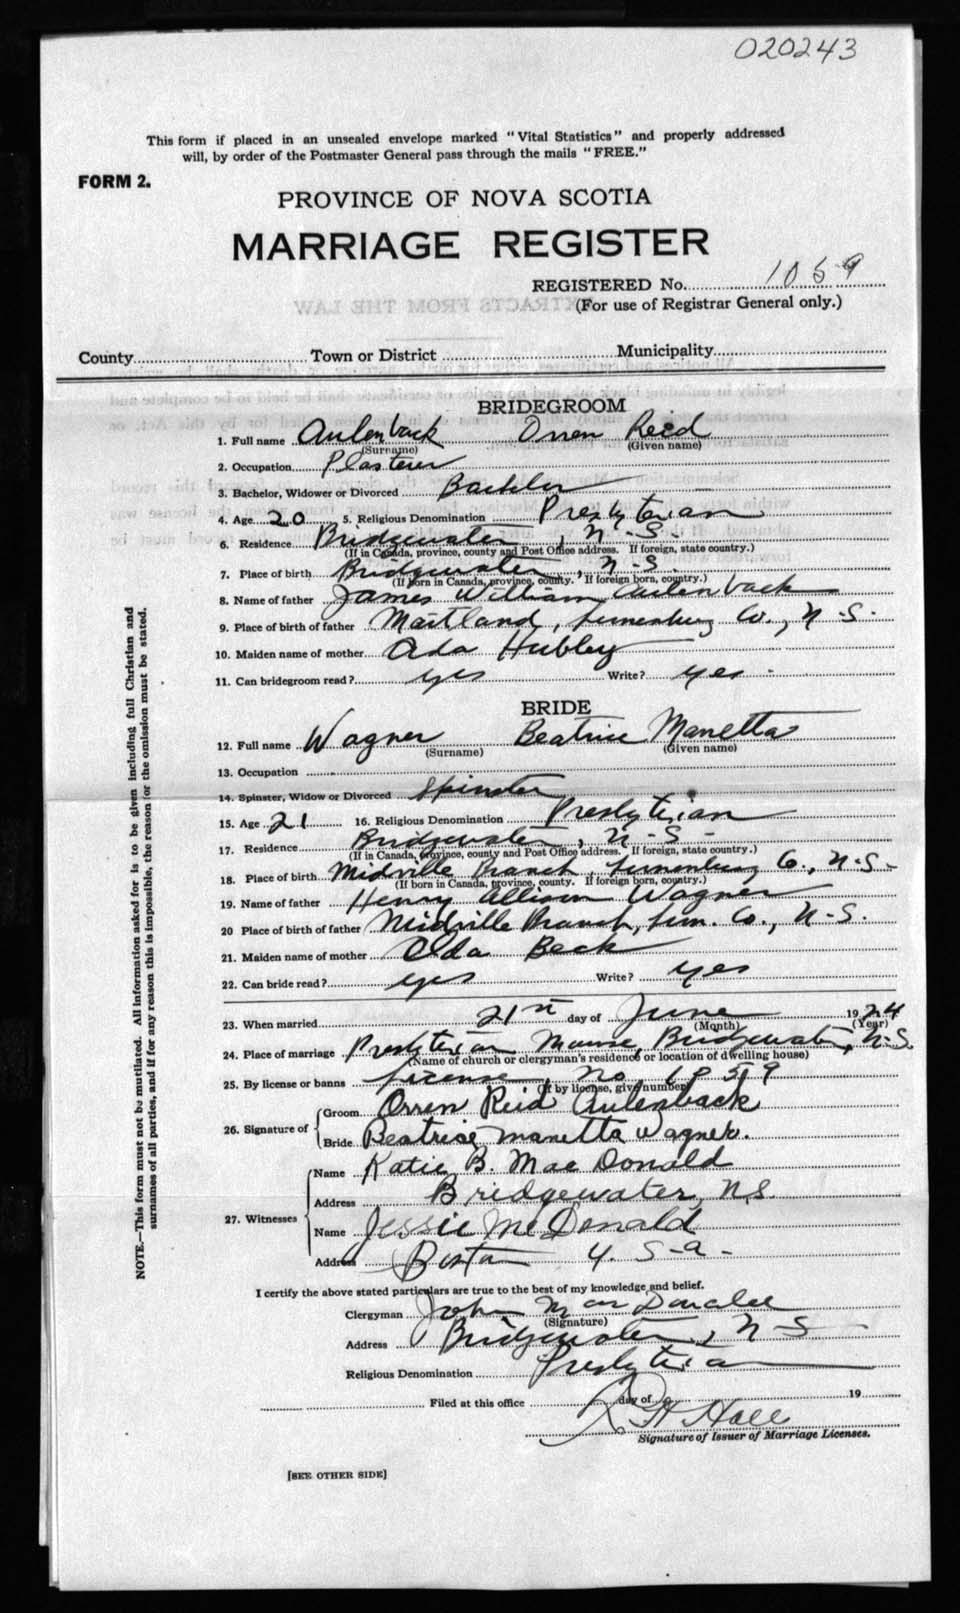 020243
This form if placed in an unsealed envelope marked "Vital Statistics" and properly addressed
will, by order of the Postmaster General pass through the mails "FREE."
FORM 2.
PROVINCE OF NOVA SCOTIA
MARRIAGE REGISTER
REGISTERED No. 1059
(For use of Registrar General only.)
County Town or District Municipality
BRIDEGROOM
1. Full name Aulenback Orren Reid
(Surname) (Given name)
2. Occupation Plasterer
3. Bachelor, Widower or Divorced Bachelor
4. Age 20 5. Religious Denomination Presbyterian
6. Residence Bridgewater, N.S.
(If in Canada, province, county and Post Office address. If foreign, state country.)
7. Place of birth Bridgewater, N.S.
(If born in Canada, province, county. If foreign born, country.)
8. Name of father James William Aulenback
9. Place of birth of father Maitland, Lunenburg Co., N.S.
10. Maiden name of mother Ada Hubley
11. Can bridegroom read? yes Write? yes
BRIDE
12. Full name Wagner Beatrice Manetta
(Surname) (Given name)
13. Occupation
14. Spinster, Widow or Divorced Spinster
15. Age 21 16. Religious Denomination Presbyterian
17. Residence Bridgewater, N.S.
(If in Canada, province, county and Post Office address. If foreign, state country.)
18. Place of birth Midville Branch, Lunenburg Co., N.S.
(If born in Canada, province, county. If foreign born, country.)
19. Name of father Henry Allison Wagner
20 Place of birth of father Midville Branch, Lun. Co., N.S.
21. Maiden name of mother Alda Beck
22. Can bride read? yes Write? yes
23. When married 21st day of June 1924
(Month) (Year)
24. Place of marriage Presbyterian Manse, Bridgewater, N.S.
(Name of church or clergyman's residence or location of dwelling house)
25. By license or banns License, No
(If by license, give number)
26. Signature of Groom Orren Reid Aulenback
Bride Beatrice Manetta Wagner.
27. Witnesses Name Katie B. MacDonald
Address Bridgewater, N.S.
Name Jessie McDonald
Address Boston U.S.A.
I certify the above stated particulars are true to the best of my knowledge and belief.
Clergyman John MacDonald
(Signature)
Address Bridgewater, N.S.
Religious Denomination Presbyterian
Filed at this office day of 19
Hall
Signature of Issuer of Marriage Licenses.
[SEE OTHER SIDE]
NOTE.—This form must not be mutilated. All information asked for is to be given including full Christian and
surnames of all parties, and if for any reason this is impossible, the reason for the omission must be stated.